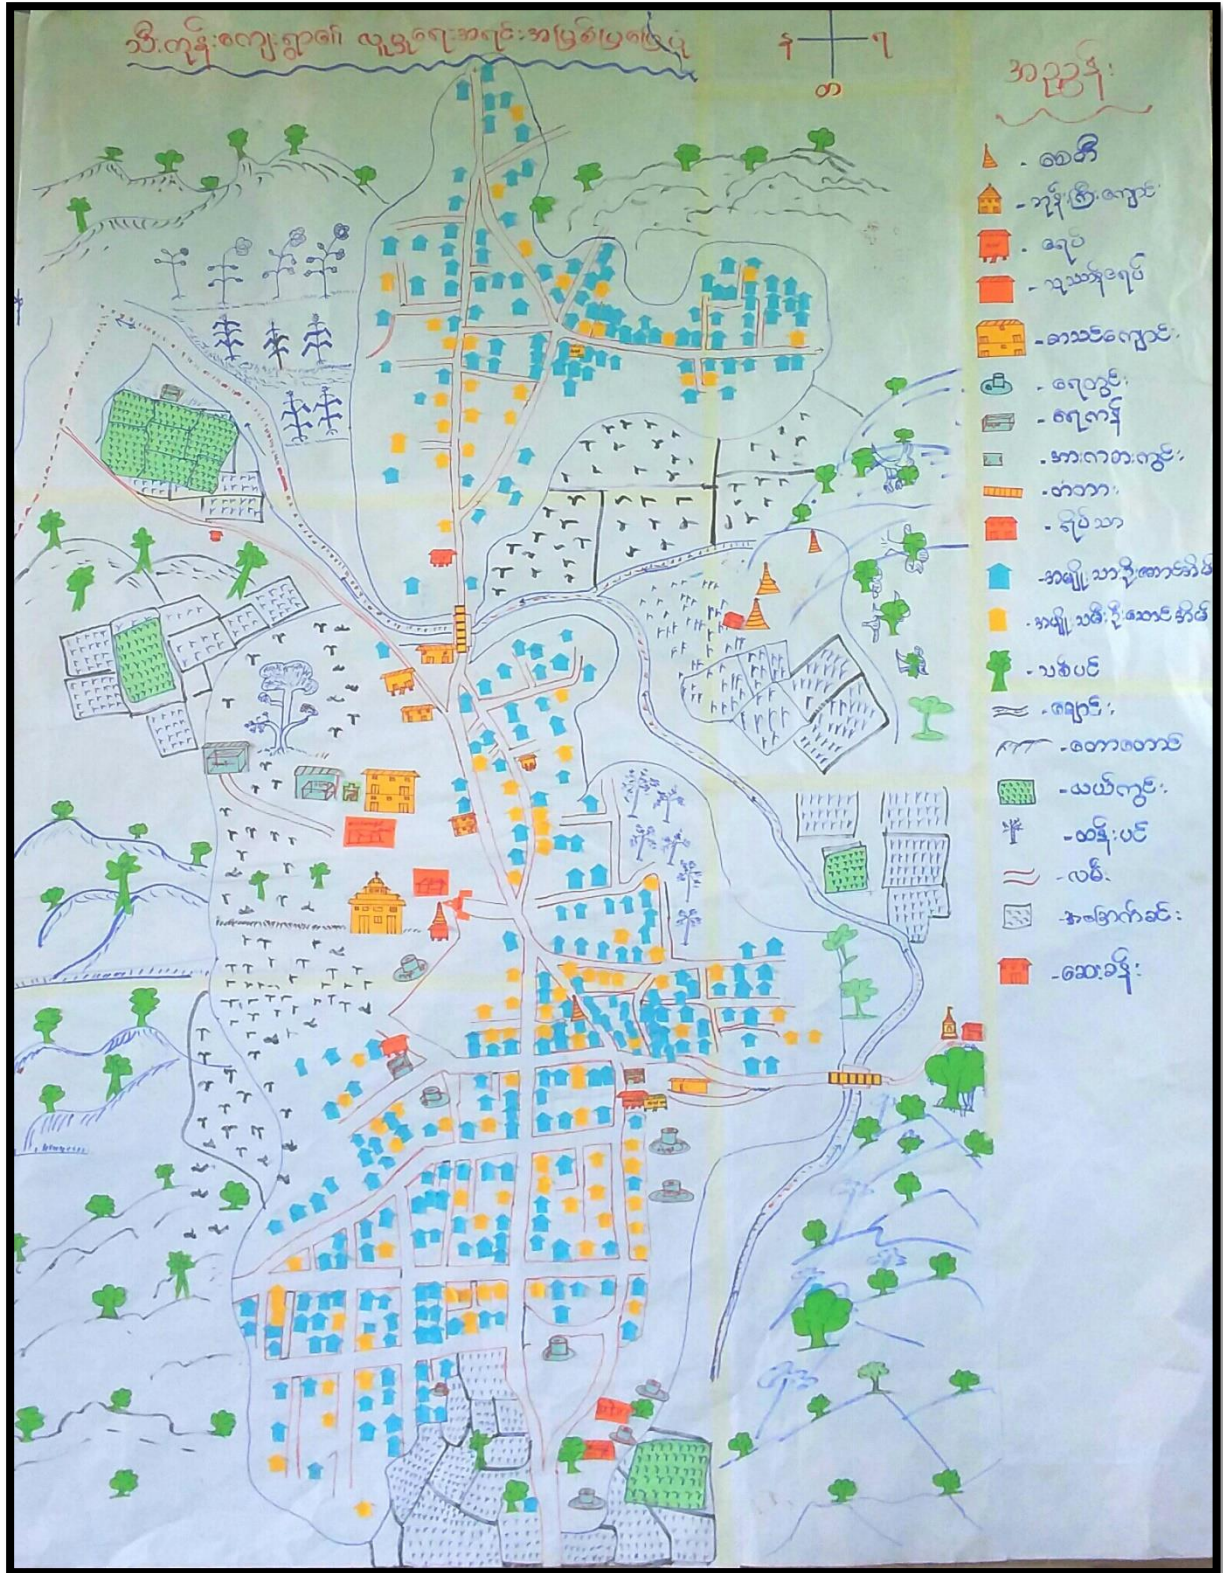 သီးကုန်းကျေးရွာ၏ လူမှုရေးအရင်းအမြစ်ပြမြေပုံ
န
ရ
တ
အညွှန်း
- စေတီ
- ဘုန်းကြီးကျောင်း
- ဇရပ်
- သုဿာန်ဇရပ်
- စာသင်ကျောင်း
- ရေတွင်း
- ရေကန်
- အားကစားကွင်း
- တံတား
- ရိပ်သာ
- အမျိုးသားဦးဆောင်အိမ်
- အမျိုးသမီးဦးဆောင်အိမ်
- သစ်ပင်
- ချောင်း
- တောတောင်
- လယ်ကွင်း
- ထန်းပင်
- လမ်း
- အခြောက်ခင်း
- ဆေးခန်း